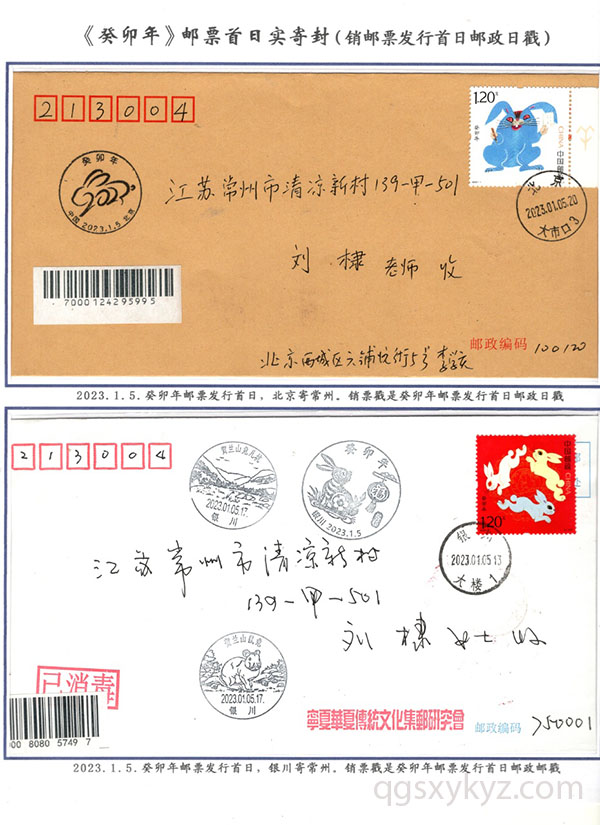 《癸卯年》邮票首日实寄封(销邮票发行首日邮政日戳)
213004
1.20元
中国邮政
CHINA
癸卯年
中国 2023.1.5 北京
北京
2023.01.05.20
江苏常州市清凉新村139-甲-501
刘棣 老师 收
7000124295995
邮政编码 100120
北京西城区六铺炕街5号
2023.1.5.癸卯年邮票发行首日,北京寄常州。销票戳是癸卯年邮票发行首日邮政日戳
213004
2023.01.05.17.
银川
癸卯年
福
银川 2023.1.5
中国邮政
CHINA
1.20元
银川
2023.01.05.13
大楼1
江苏常州市清凉新村
139-甲-501
刘棣女士收
2023.01.05.17.
银川
已消毒
00 8080 5749 7
寧夏華夏傳統文化集郵研究會
邮政编码 750001
2023.1.5.癸卯年邮票发行首日,银川寄常州。销票戳是癸卯年邮票发行首日邮政邮戳
qgsxykyz.com